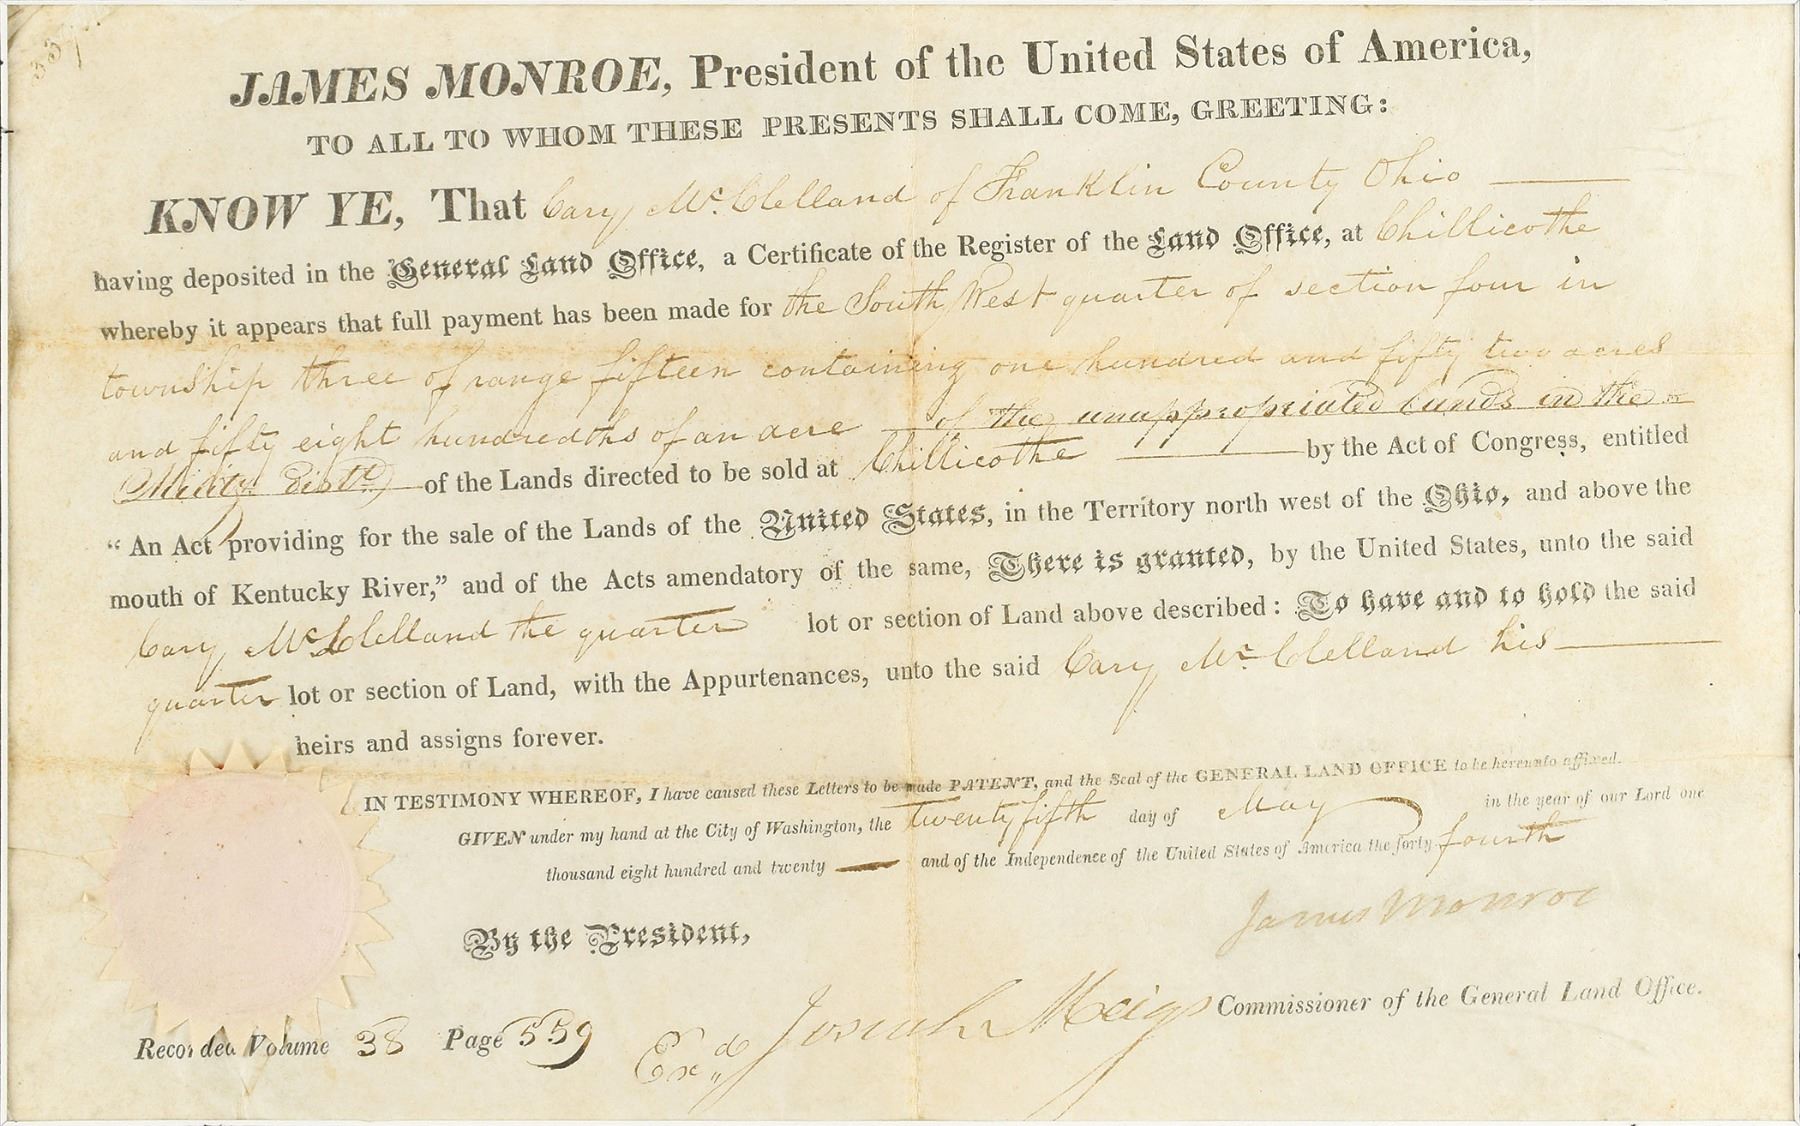 JAMES MONROE, President of the United States of America,
TO ALL TO WHOM THESE PRESENTS SHALL COME, GREETING:
KNOW YE, That Cary McClelland of Franklin County Ohio
having deposited in the General Land Office, a Certificate of the Register of the Land Office, at Chillicothe
whereby it appears that full payment has been made for the South West quarter of section four in
township three of range fifteen containing one hundred and fifty two acres
and fifty eight hundredths of an acre of the unappropriated lands in the
Military Distt. of the Lands directed to be sold at Chillicothe by the Act of Congress, entitled
“An Act providing for the sale of the Lands of the United States, in the Territory north west of the Ohio, and above the
mouth of Kentucky River,” and of the Acts amendatory of the same, There is granted, by the United States, unto the said
Cary McClelland the quarter lot or section of Land above described: To have and to hold the said
quarter lot or section of Land, with the Appurtenances, unto the said Cary McClelland his
heirs and assigns forever.
IN TESTIMONY WHEREOF, I have caused these Letters to be made PATENT, and the Seal of the GENERAL LAND OFFICE to be hereunto affixed.
GIVEN under my hand at the City of Washington, the twenty fifth day of May in the year of our Lord one
thousand eight hundred and twenty and of the Independence of the United States of America the forty fourth
James Monroe
By the President,
Josiah Meigs Commissioner of the General Land Office.
Recorded Volume 38 Page 559 Exd